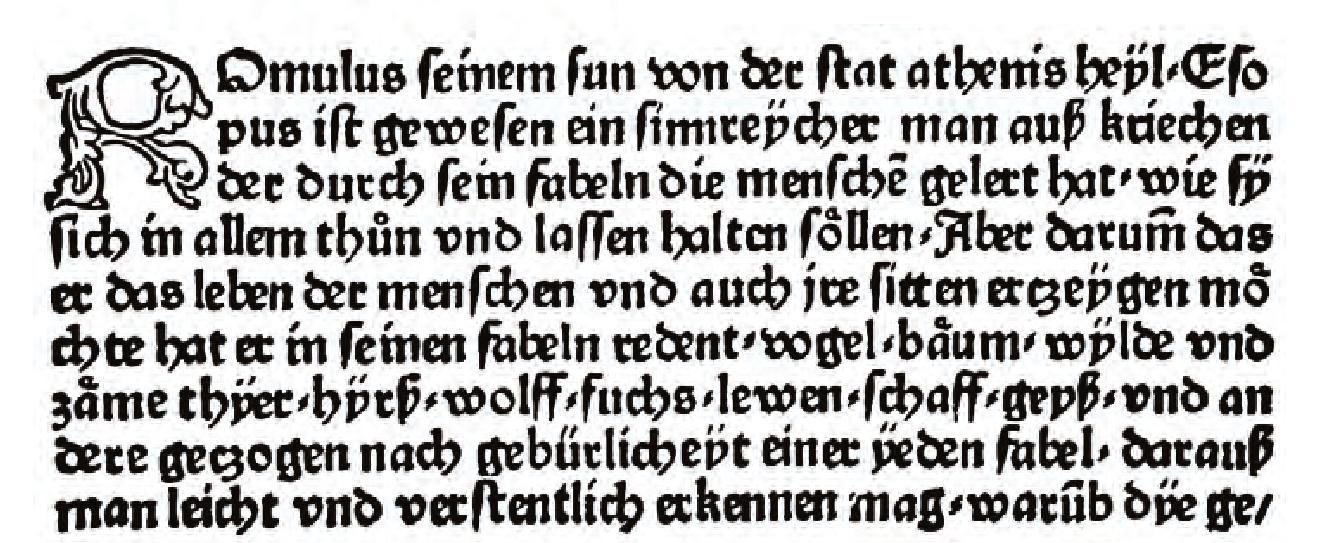 ROmulus ſeinem ſun von der ſtat athenis heÿl·Eſo
pus iſt geweſen ein ſinnreÿcher man auß kriechen
der durch ſein fabeln die menſchē gelert hat·wie ſÿ
ſich in allem thůn vnd laſſen halten ſoͤllen·Aber darum̄ das
er das leben der menſchen vnd auch jre ſitten erczeÿgen moͤ
chte hat er in ſeinen fabeln redent·vogel·baͤum·wÿlde vnd
zaͤme thÿer·hÿrß·wolff·fuchs·lewen·ſchaff·geyß·vnd an
dere geczogen nach gebürlicheÿt einer ÿeden fabel·darauß
man leicht vnd verſtentlich erkennen mag·warūb dÿe ge/